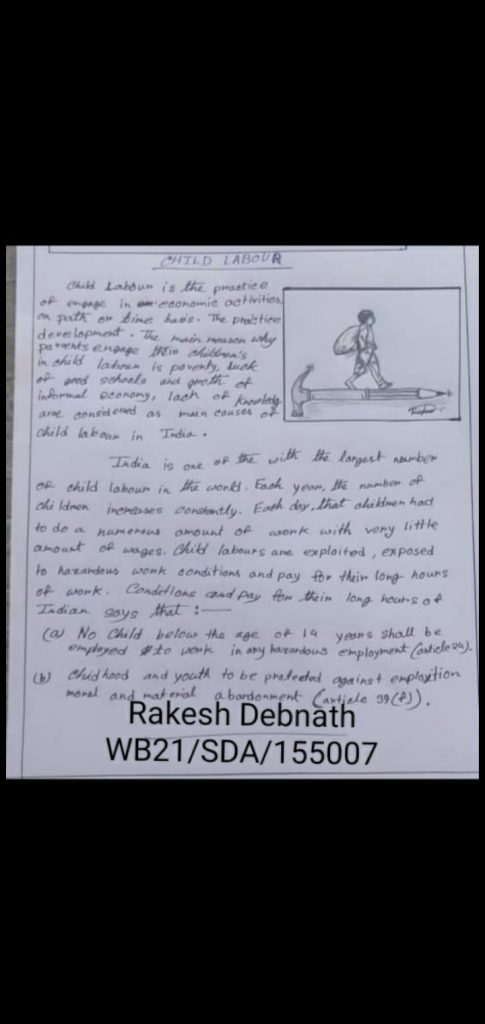 CHILD LABOUR
Child Labour is the practice
of engage in economic activities,
on path or time basis. The practice
development. The main reason why
parents engage their children's
in child labour is poverty, luck
of good schools and groth of
informal economy, lack of knowledg
are considered as main couses of
child labour in India.
India is one of the with the largest number
of child labour in the world. Each year, the number of
children increases constantly. Each day, that children had
to do a numerous amount of work with very little
amount of wages. Child labours are exploited, exposed
to hazardous work conditions and pay for their long hours
of work. Conditions and pay for their long hours of
Indian says that :—
(a) No Child below the age of 14 years shall be
employed to work in any hazardous employment (article 24).
(b) Chidhood and youth to be protected against
moral and material abordonment (article 39(f)).
Rakesh Debnath
WB21/SDA/155007